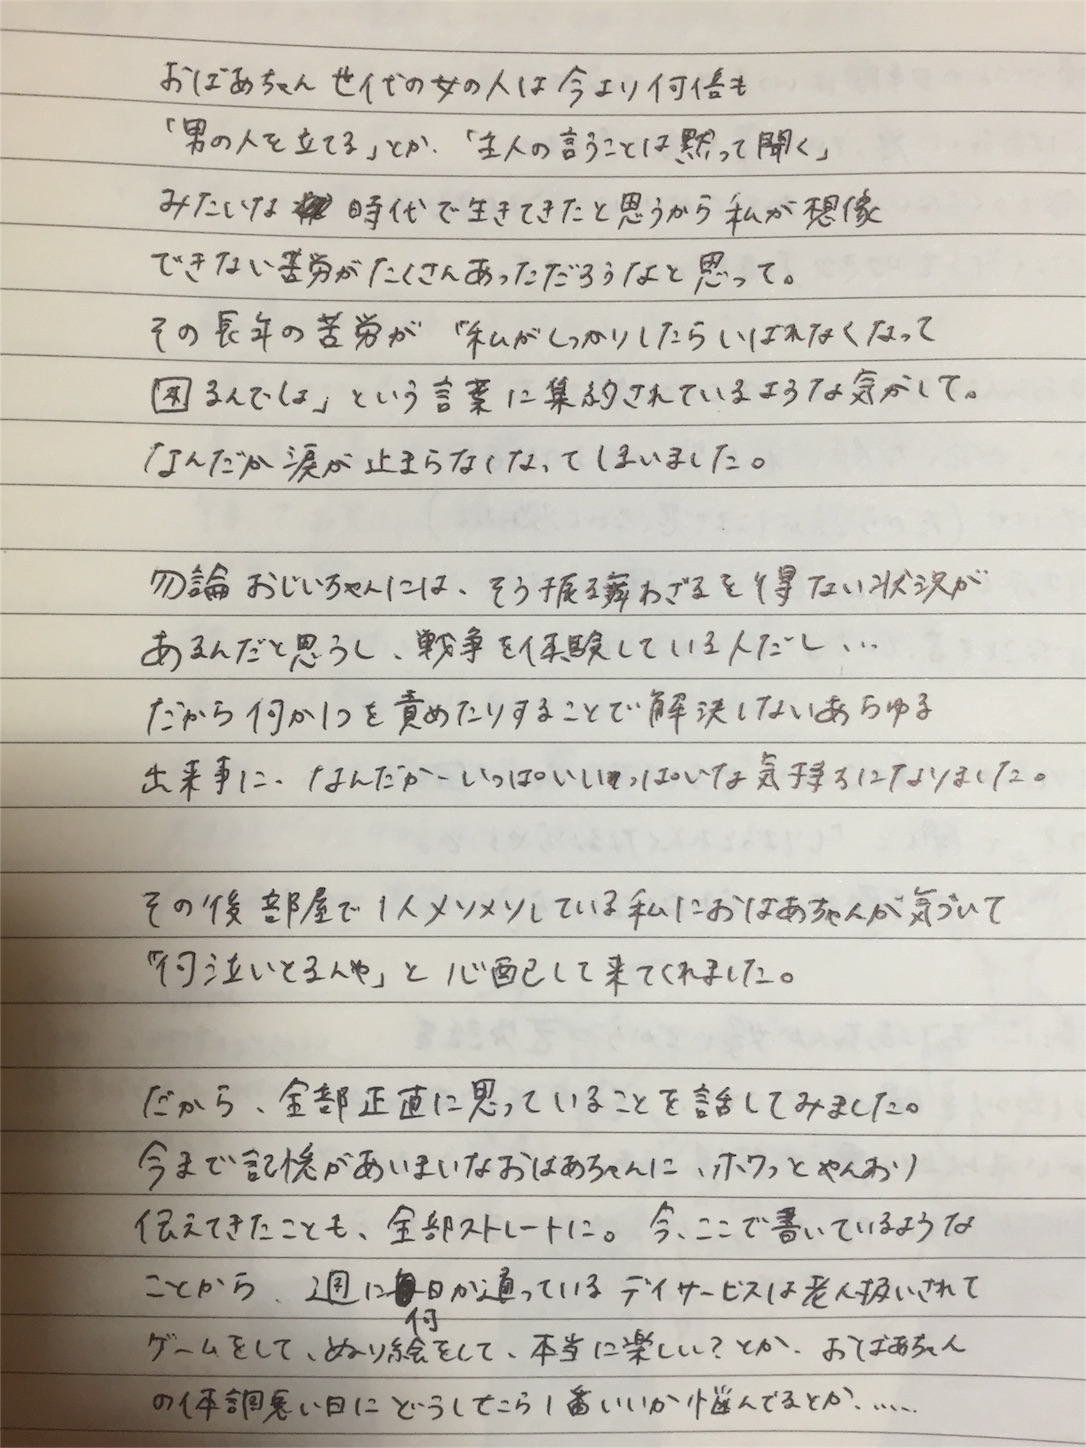 おばあちゃん世代の女の人は今より何倍も
「男の人を立てる」とか、「主人の言うことは黙って聞く」
みたいな 時代で生きてきたと思うから私が想像
できない苦労がたくさんあっただろうなと思って。
その長年の苦労が「私がしっかりしたらいばれなくなって
困るんでしょ」という言葉に集約されているような気がして。
なんだか涙が止まらなくなってしまいました。
勿論おじいちゃんには、そう振る舞わざるを得ない状況が
あるんだと思うし、戦争を体験している人だし…
だから何か1つを責めたりすることで解決しないあらゆる
出来事に、なんだかーいっぱいいっぱいな気持ちになりました。
その後部屋で1人メソメソしている私におばあちゃんが気づいて
「何泣いとるんや」と心配して来てくれました。
だから、全部正直に思っていることを話してみました。
今まで記憶があいまいなおばあちゃんに、ホワっとやんわり
伝えてきたことも、全部ストレートに。今、ここで書いているような
ことから、週に何日か通っているデイサービスは老人扱いされて
ゲームをして、ぬり絵をして、本当に楽しい？とか、おばあちゃん
の体調悪い日にどうしたら1番いいか悩んでるとか……